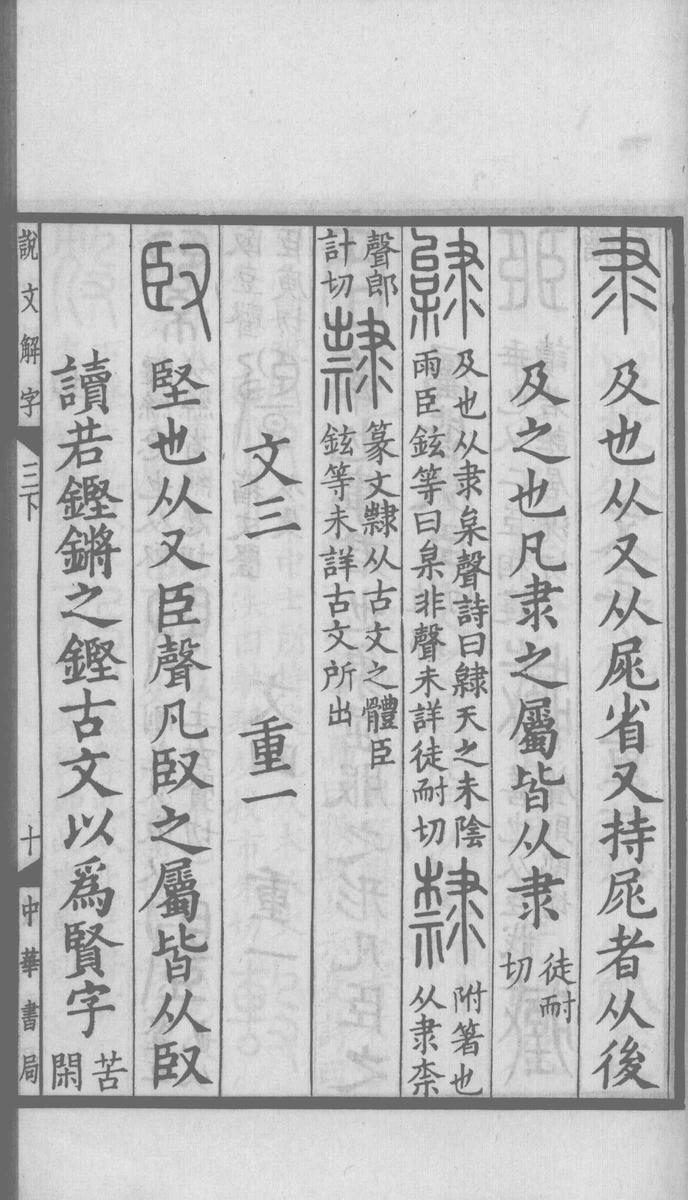 隶 及也从又从𡲵省又持𡲵者从後
及之也凡隶之屬皆从隶 徒耐切
𨽿 及也从隶枲聲詩曰𨽿天之未陰雨臣鉉等曰枲非聲未詳徒耐切 隸 附箸也从隶柰
聲郎計切 𨽸 篆文隸从古文之體臣鉉等未詳古文所出
文三 重一
臤 堅也从又臣聲凡臤之屬皆从臤
讀若鏗鏘之鏗古文以爲賢字 苦閑
說文解字 三下 十 中華書局